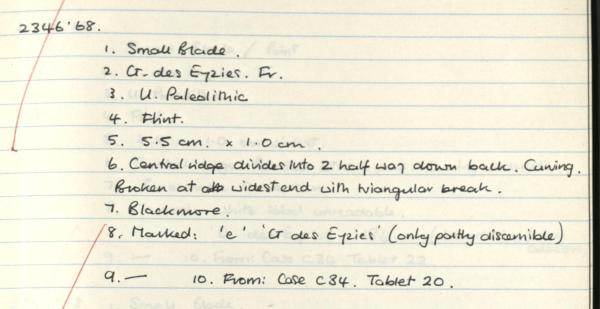 2346'68.
1. Small Blade.
2. Cr. des Eyzies. Fr.
3. U. Paleolithic
4. Flint.
5. 5.5 cm. x 1.0 cm.
6. Central ridge divides into 2 half way down back. Curving.
Broken at widest end with triangular break.
7. Blackmore.
8. Marked: 'e' 'Cr des Eyzies' (only partly discernible)
9. — 10. From: Case C34. Tablet 20.